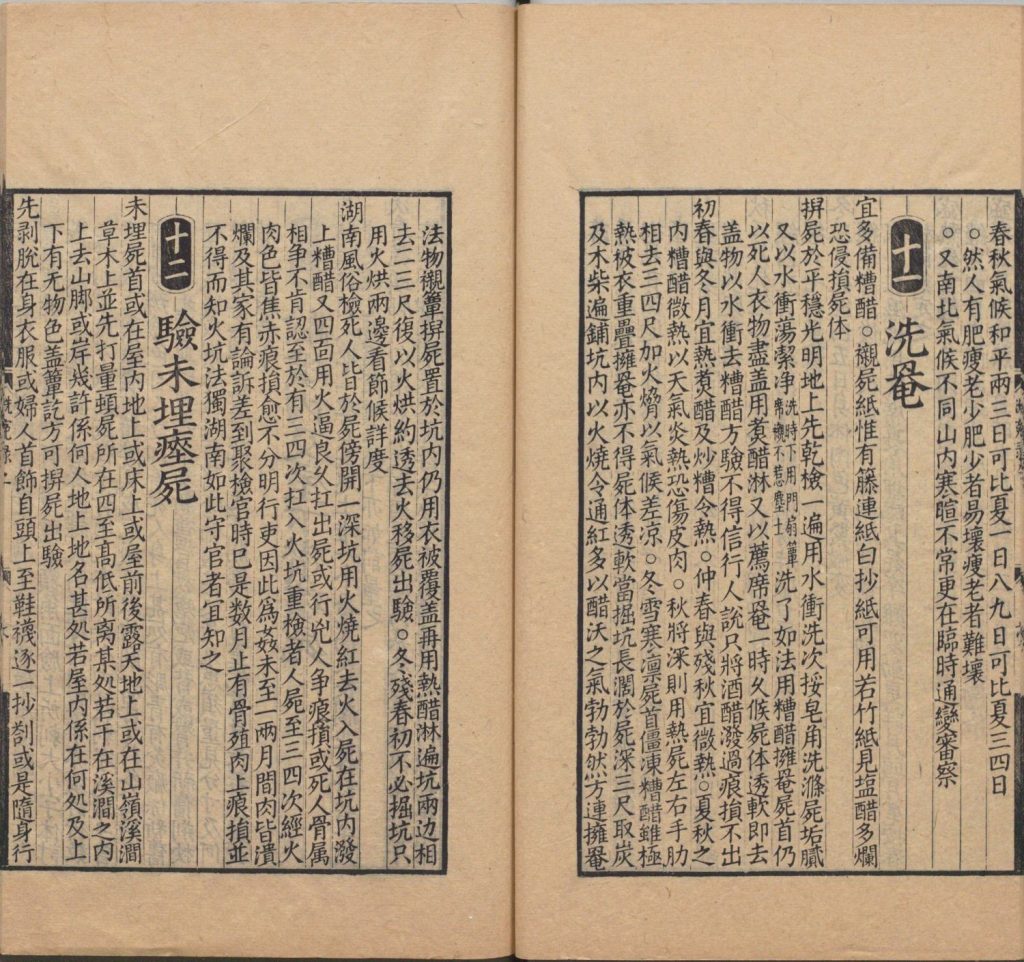 春秋氣候和平兩三日可比夏一日八九日可比夏三四日
○然人有肥瘦老少肥少者易壞瘦老者難壞
○又南北氣候不同山内寒暄不常更在臨時通變審察
十一
洗罨
宜多備糟醋○襯屍紙惟有籐連紙白抄紙可用若竹紙見塩醋多爛
恐侵損屍体
搟屍於平穩光明地上先乾檢一遍用水衝洗次挼皂角洗滌屍垢膩
又以水衝蕩潔净洗時下用門扇簟席襯不惹塵土洗了如法用糟醋擁罨屍首仍
以死人衣物盡盖用煑醋淋又以薦席罨一時久候屍体透軟即去
盖物以水衝去糟醋方驗不得信行人說只將酒醋潑過痕損不出
初春與冬月宜熱煑醋及炒糟令熱○仲春與殘秋宜微熱○夏秋之
内糟醋微熱以天氣炎熱恐傷皮肉○秋將深則用熱屍左右手肋
相去三四尺加火熁以氣候差凉○冬雪寒凛屍首僵凍糟醋雖極
熱被衣重疊擁罨亦不得屍体透軟當掘坑長濶於屍深三尺取炭
及木柴遍鋪坑内以火燒令通紅多以醋沃之氣勃勃然方連擁罨
法物襯簟搟屍置於坑内仍用衣被覆盖再用熱醋淋遍坑兩边相
去二三尺復以火烘約透去火移屍出驗○冬殘春初不必掘坑只
用火烘兩邊看節候詳度
湖南風俗檢死人皆於屍傍開一深坑用火燒紅去火入屍在坑内潑
上糟醋又四面用火逼良久扛出屍或行兇人争痕損或死人骨属
相争不肯認至於有三四次扛入火坑重檢者人屍至三四次經火
肉色皆焦赤痕損愈不分明行吏因此爲姦未至一兩月間肉皆潰
爛及其家有論訴差到聚檢官時已是数月止有骨殖肉上痕損並
不得而知火坑法獨湖南如此守官者宜知之
十二
驗未埋瘞屍
未埋屍首或在屋内地上或床上或屋前後露天地上或在山嶺溪澗
草木上並先打量頓屍所在四至髙低所离某処若干在溪澗之内
上去山脚或岸幾許係何人地上地名甚処若屋内係在何処及上
下有无物色盖簟訖方可搟屍出驗
先剥脫在身衣服或婦人首飾自頭上至鞋襪逐一抄劄或是隨身行